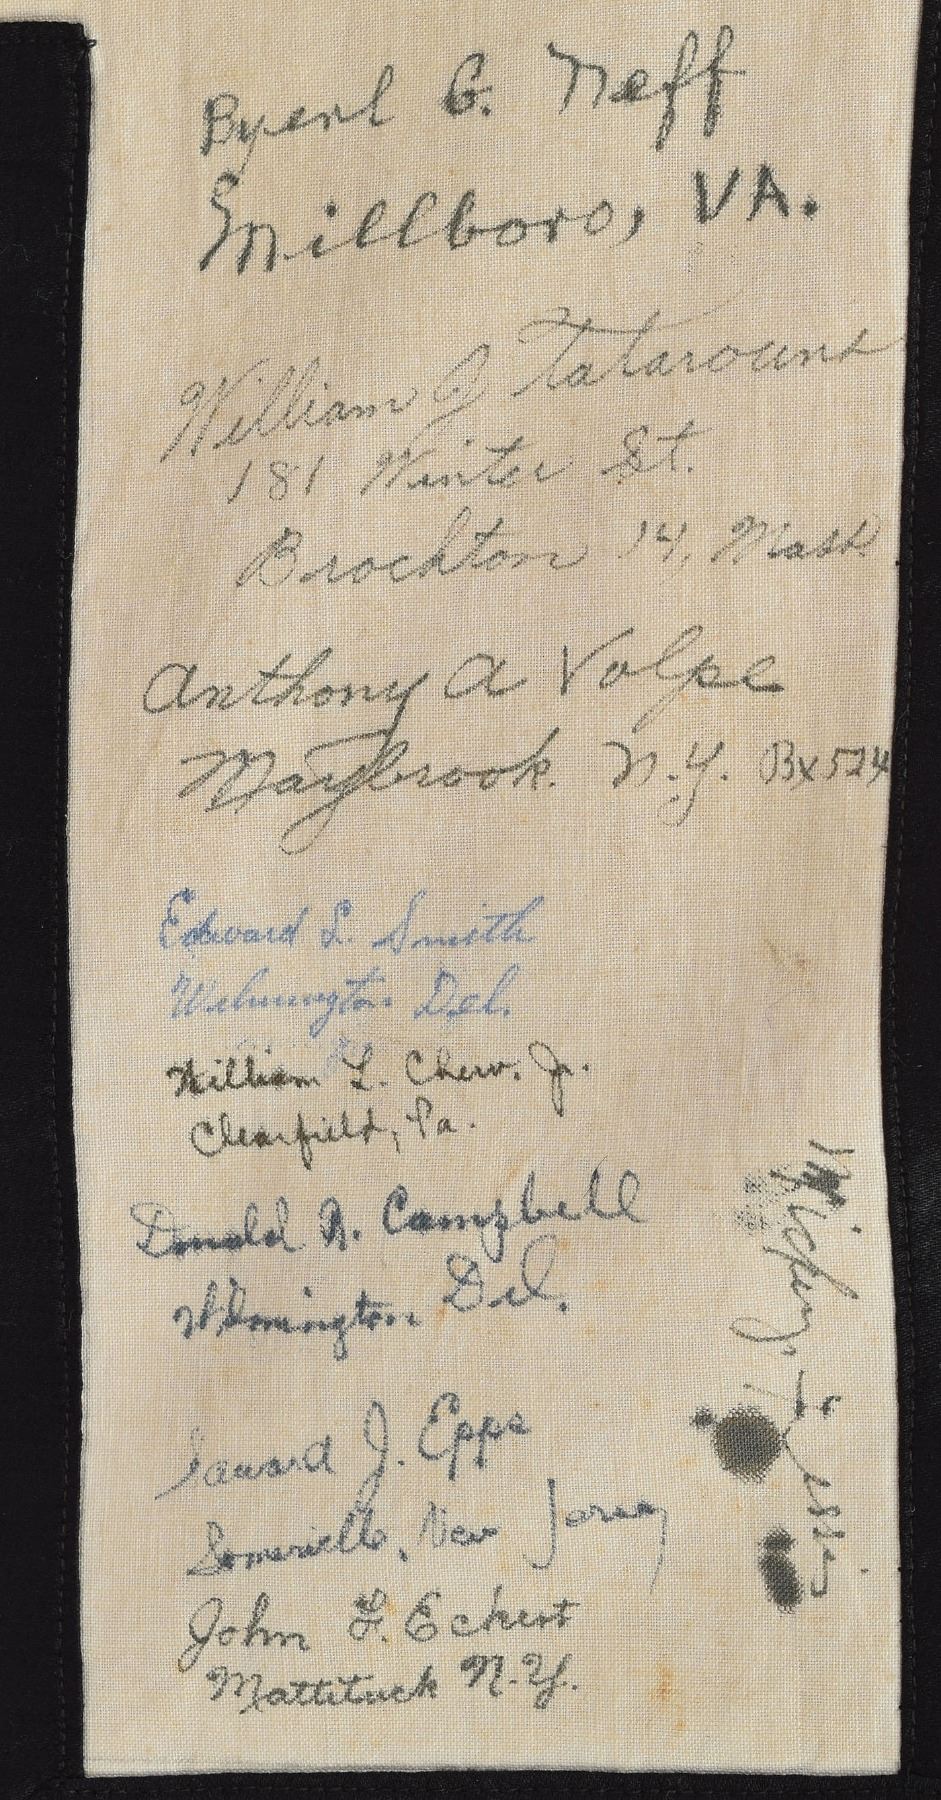 Byerl G. Neff
Millboro, VA.
William J
181 Winter St.
Brockton 14, Mass
Anthony A Volpe
Maybrook. N.Y. Bx 524
Edward L. Smith
Wilmington Del.
William L. Chew. Jr.
Clearfield, Pa.
Donald R. Campbell
Wilmington Del.
Edward J. Epps
Somerville, New Jersey
John F. Eckert
Mattituck N.Y.